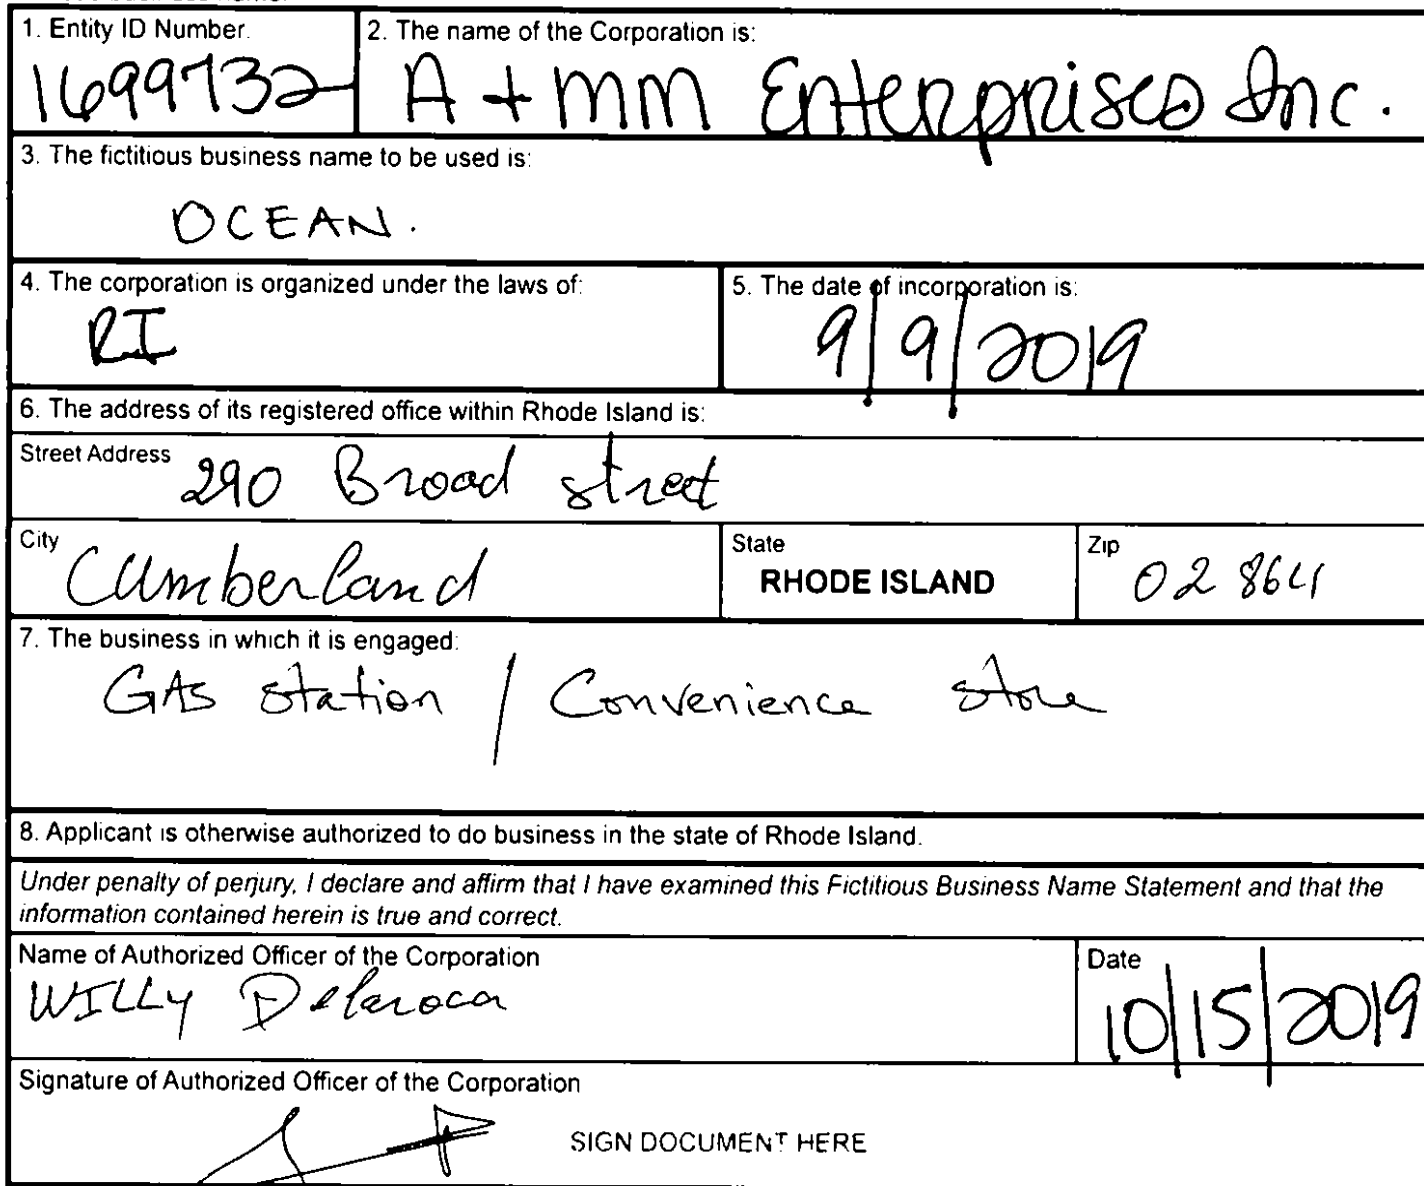 1. Entity ID Number. 2. The name of the Corporation is:
1699732 A + MM Enterprises Inc.
3. The fictitious business name to be used is:
OCEAN.
4. The corporation is organized under the laws of: 5. The date of incorporation is:
RI 9/9/2019
6. The address of its registered office within Rhode Island is:
Street Address 290 Broad street
City Cumberland State RHODE ISLAND Zip 02864
7. The business in which it is engaged:
GAS station / Convenience store
8. Applicant is otherwise authorized to do business in the state of Rhode Island.
Under penalty of perjury, I declare and affirm that I have examined this Fictitious Business Name Statement and that the
information contained herein is true and correct.
Name of Authorized Officer of the Corporation Date
WILLY Delaroca 10/15/2019
Signature of Authorized Officer of the Corporation
SIGN DOCUMENT HERE